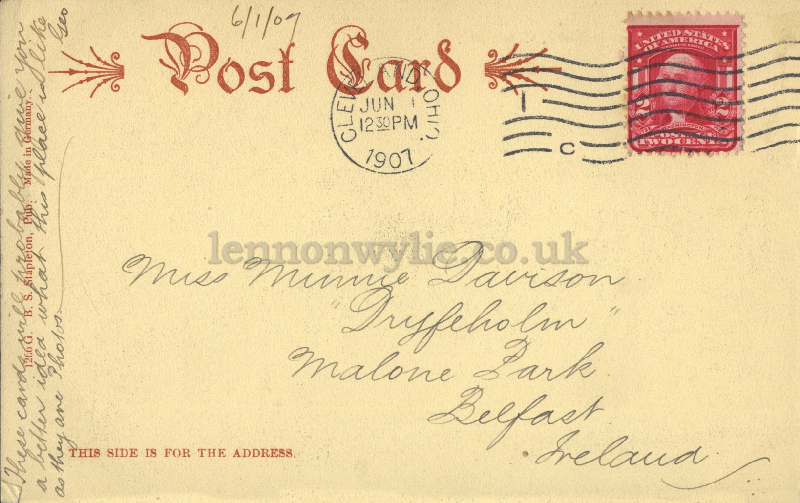 6/1/07
Post Card
CLEVELAND, OHIO.
JUN 1
12 30 PM
1907
C
UNITED STATES
OF AMERICA
2 2
POSTAGE
TWO CENTS
lennonwylie.co.uk
Miss Minnie Davison
"Dryfeholm"
Malone Park
Belfast
Ireland
THIS SIDE IS FOR THE ADDRESS.
B. S. Stapleton, Pub. Made in Germany.
These cards will probably give you
a better idea what this place is like
as they are Photos. Geo